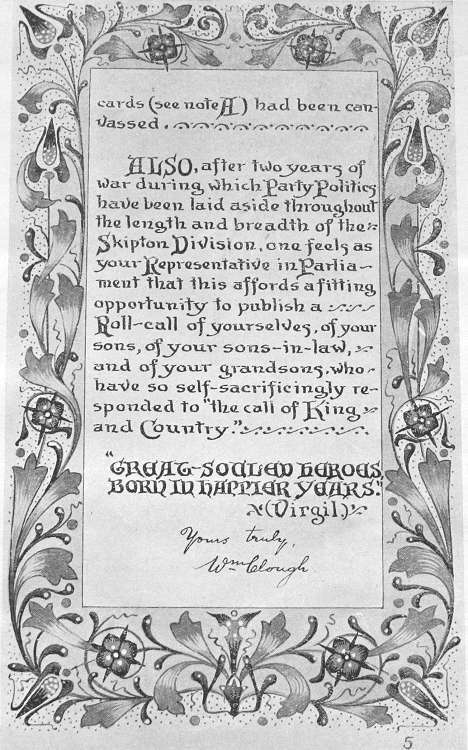 cards (see note A) had been can-
vassed.
ALSO, after two years of
war during which Party Politics
have been laid aside throughout
the length and breadth of the
Skipton Division, one feels as
your Representative in Parlia-
ment that this affords a fitting
opportunity to publish a
Roll-call of yourselves, of your
sons, of your sons-in-law,
and of your grandsons, who
have so self-sacrificingly re-
sponded to "the call of King
and Country."
"GREAT-SOULED HEROES
BORN IN HAPPIER YEARS."
(Virgil)
Yours truly,
Wm Clough
5